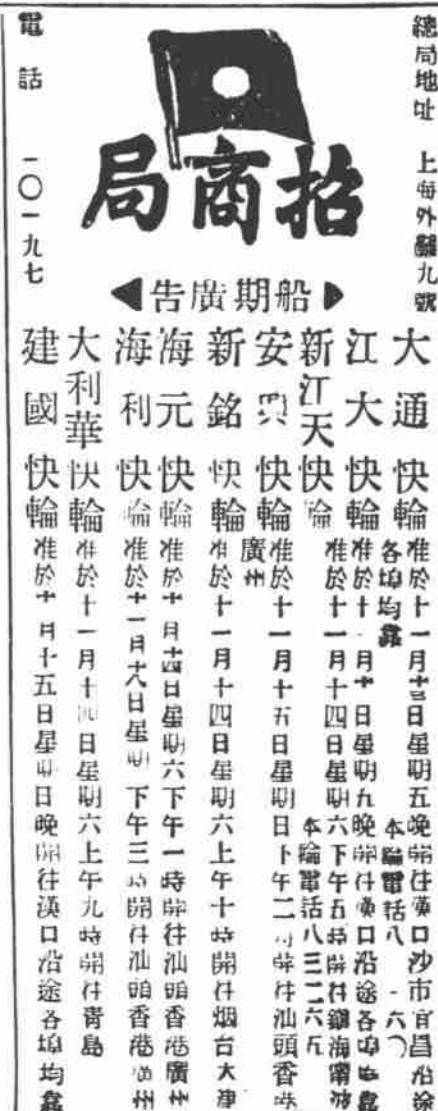 總局地址 上海外灘九號
招商局
電話 一〇一九七
船期廣告
大通 快輪 准於十一月十三日星期五晚開往漢口沙市宜昌沿途
各埠均靠 本輪電話八
江大 快輪 准於十一月十日星期 晚開往漢口沿途各埠均靠
新江天 快輪 准於十一月十四日星期六下午五時開往鎮海甯波
本輪電話八三一六五
安興 快輪 准於十一月十五日星期日下午二時開往汕頭香港
廣州
新銘 快輪 准於十一月十四日星期六上午十時開往烟台天津
海元 快輪 准於十一月十四日星期六下午一時開往汕頭香港廣州
海利 快輪 准於十一月十八日星期 下午三時開往汕頭香港廣州
大利華 快輪 准於十一月十四日星期六上午九時開往青島
建國 快輪 准於十一月十五日星期日晚開往漢口沿途各埠均靠